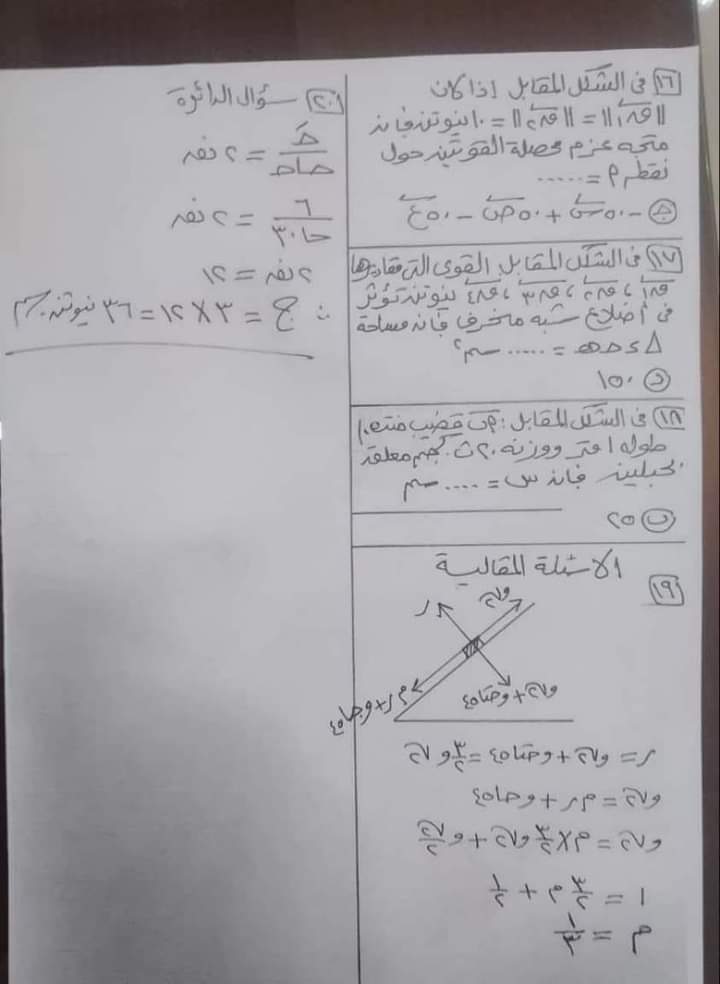 ١٦ فى الشكل المقابل إذا كان
||ق١|| = ||ق٢|| = ١٠ نيوتن فإن
متجه عزم محصلة القوتين حول
نقطة م = .....
جـ -٥٠ س + ٥٠ ص - ٥٠ ع
١٧ فى الشكل المقابل القوى التى مقاديرها
ق١، ق٢، ق٣، ق٤ نيوتن تؤثر
فى أضلاع شبه منحرف فإن مساحة
Δ د ح هـ = ..... سم٢
د ١٥٠
١٨ فى الشكل المقابل: م ب قضيب منتظم
طوله ١ متر ووزنه ٢٠ ث. كجم معلقه
بحبلين فإن س = .... سم
ب ٢٥
الاسئلة المقالية
١٩
ر
و√٢
و√٢ + و حتا٤٥
م ر + و جا٤٥
ر = و√٢ + و حتا٤٥ = ٣/٢ و√٢
و√٢ = م ر + و حا٤٥
و√٢ = م × ٣/٢ و√٢ + و √٢/٢
١ = ٣/٢ م + ١/٢
م = ١/٣
٢٠ سؤال الدائرة
حَ/حا حَ = ٢ نق
٦/حا ٣٠ = ٢ نق
٢ نق = ١٢
∴ ج = ٣ × ١٢ = ٣٦ نيوتن. سم